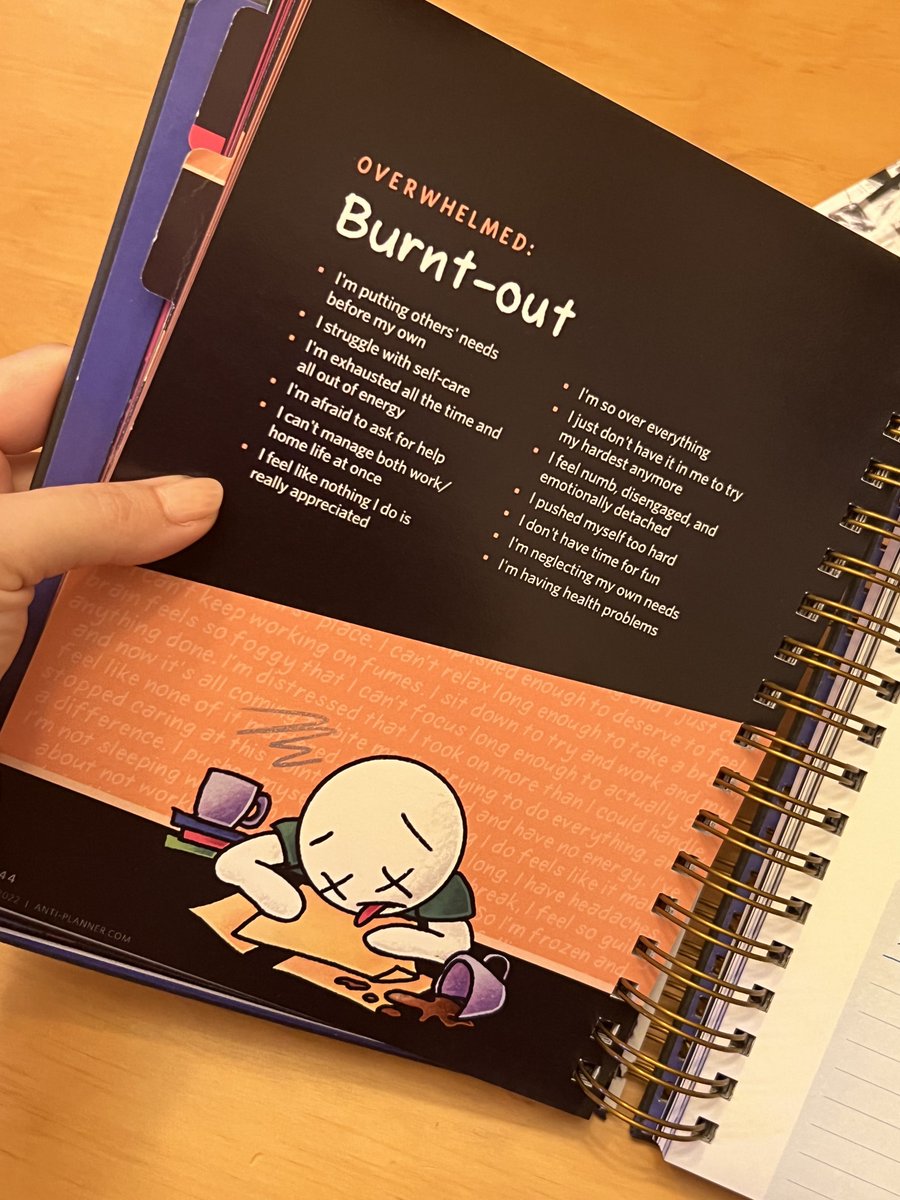 OVERWHELMED:
Burnt-out
• I'm putting others' needs
before my own
• I struggle with self-care
• I'm exhausted all the time and
all out of energy
• I'm afraid to ask for help
• I can't manage both work/
home life at once
• I feel like nothing I do is
really appreciated
• I'm so over everything
• I just don't have it in me to try
my hardest anymore
• I feel numb, disengaged, and
emotionally detached
• I pushed myself too hard
• I don't have time for fun
• I'm neglecting my own needs
• I'm having health problems
I can't relax long enough to deserve to
keep working on fumes. I sit down to take a
feels so foggy that I can't focus long enough to try and work, and
anything done. I'm distressed that I took on more than I could
and now it's all trying to do everything,
feel like none of it and have no energy.
stopped caring at this do feels like it
difference. I I have headaches
I'm not sleeping I feel so
about not I'm frozen and
44
2022 | ANTI-PLANNER.COM